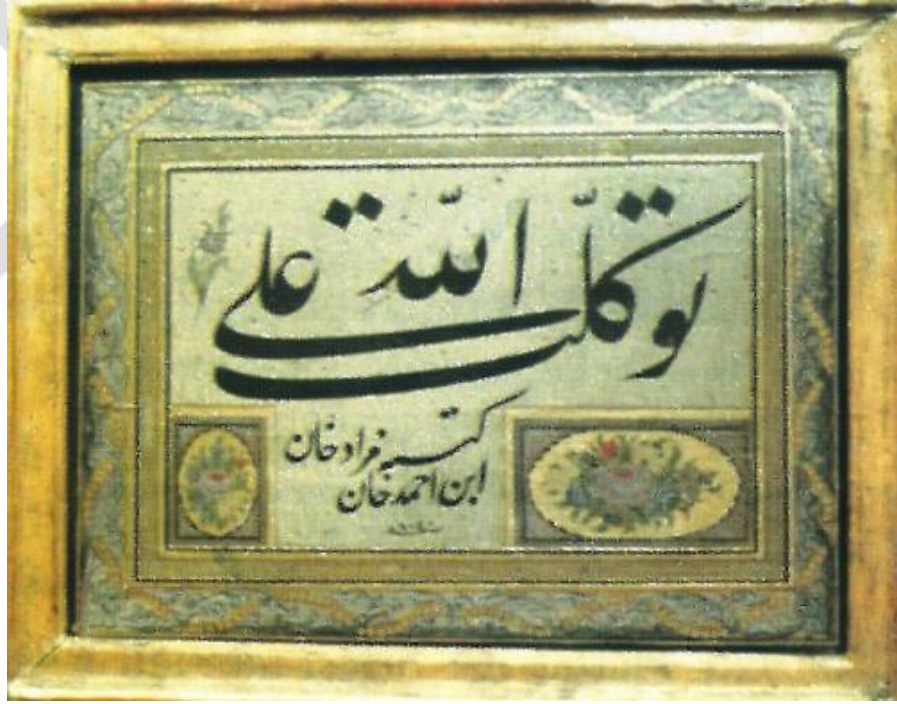 توکلت علی الله
کتبه مراد خان
ابن احمد خان